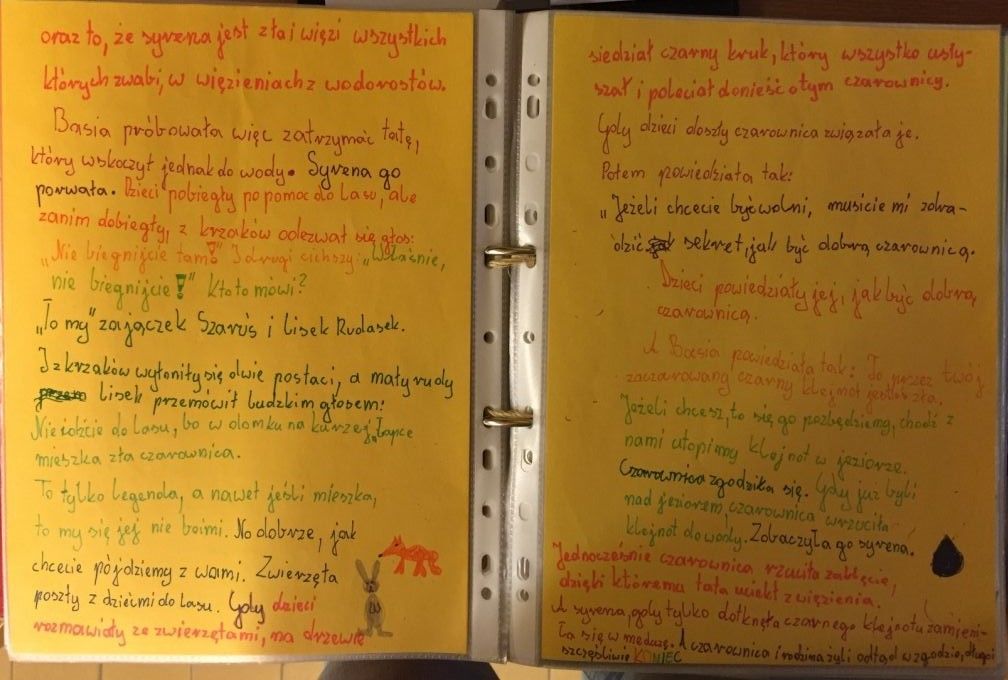 oraz to, że syrena jest zła i więzi wszystkich
których zwabi, w więzieniach z wodorostów.
Basia próbowała więc zatrzymać tatę,
który wskoczył jednak do wody. Syrena go
porwała. Dzieci pobiegły po pomoc do lasu, ale
zanim dobiegły, z krzaków odezwał się głos:
„Nie biegnijcie tam!" I drugi cichszy: „Właśnie,
nie biegnijcie!" Kto to mówi?
„To my" zajączek Szaruś i lisek Rudasek.
I z krzaków wyłoniły się dwie postaci, a mały rudy
lisek przemówił ludzkim głosem:
Nie idźcie do lasu, bo w domku na kurzej łapce
mieszka zła czarownica.
To tylko legenda, a nawet jeśli mieszka,
to my się jej nie boimi. No dobrze, jak
chcecie pójdziemy z wami. Zwierzęta
poszły z dziećmi do lasu. Gdy dzieci
rozmawiały ze zwierzętami, na drzewie
siedział czarny kruk, który wszystko usły-
szał i poleciał donieść o tym czarownicy.
Gdy dzieci doszły czarownica związała je.
Potem powiedziała tak:
„Jeżeli chcecie być wolni, musicie mi zdra-
dzić sekret, jak być dobrą czarownicą.
Dzieci powiedziały jej, jak być dobrą
czarownicą.
A Basia powiedziała tak: To przez twój
zaczarowany czarny klejnot jesteś zła.
Jeżeli chcesz, to się go pozbędziemy, chodź z
nami utopimy klejnot w jeziorze.
Czarownica zgodziła się. Gdy już byli
nad jeziorem, czarownica wrzuciła
klejnot do wody. Zobaczyła go syrena.
Jednocześnie czarownica rzuciła zaklęcie,
dzięki któremu tata uciekł z więzienia.
A syrena, gdy tylko dotknęła czarnego klejnotu zamieni-
ła się w meduzę. A czarownica i rodzina żyli odtąd w zgodzie, długo i
szczęśliwie KONIEC